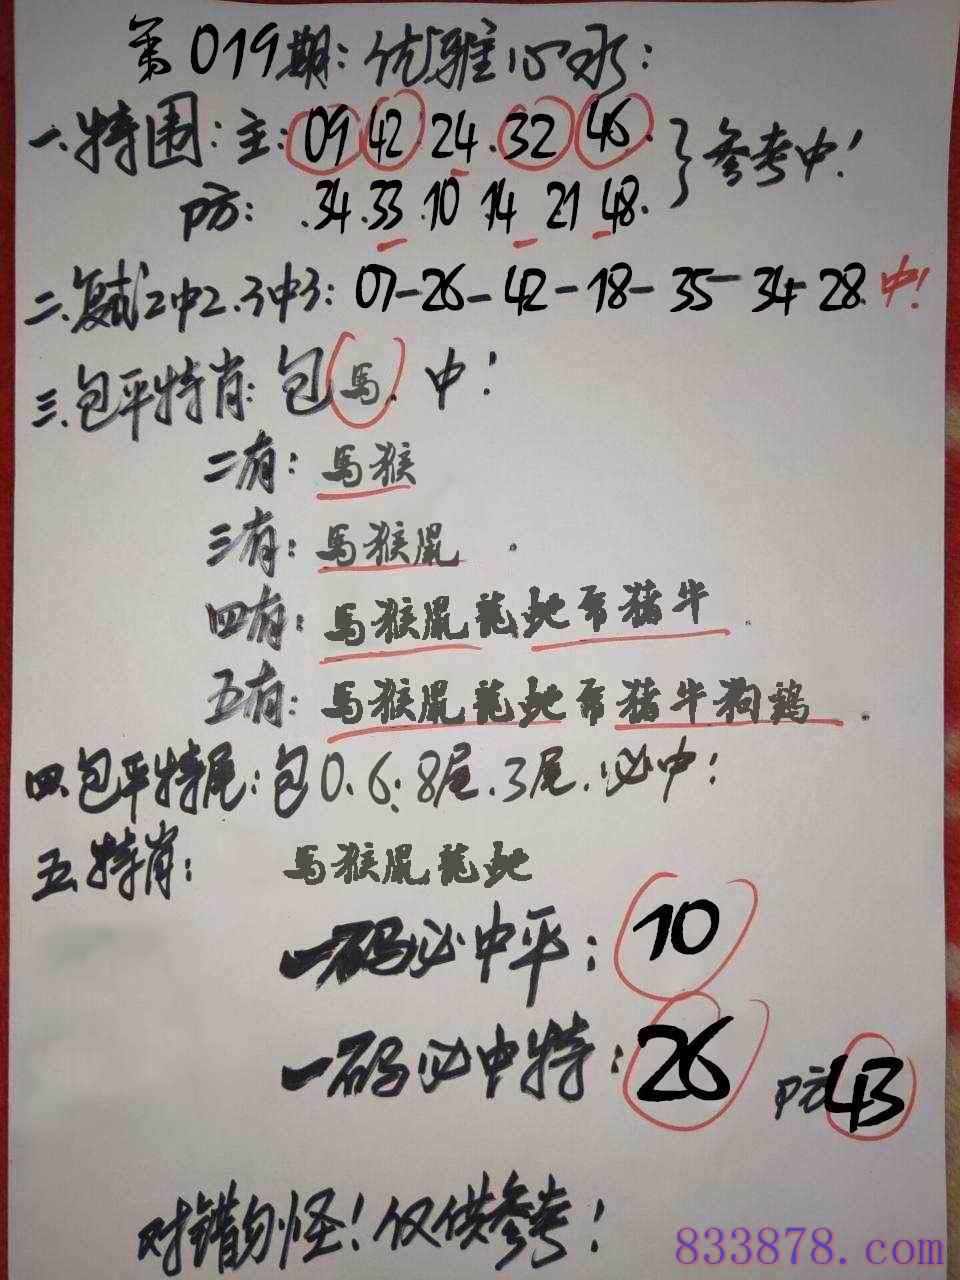 第019期：优雅心水：
一.特围：主：09 42.24.32 46.
防：.34.33.10 14 21 48.
}参考中！
二.复式2中2.3中3：07-26-42-18-35-34-28.中！
三.包平特肖：包馬.中！
二有：馬猴
三有：馬猴鼠.
四有：馬猴鼠龍蛇希猪牛.
五有：馬猴鼠龍蛇希猪牛狗鶏.
四.包平特尾：包0.6：8尾.3尾.必中！
五.特肖：馬猴鼠龍蛇
一码必中平：10
一码必中特：26 防43
对错勿怪！仅供参考！
833878.com